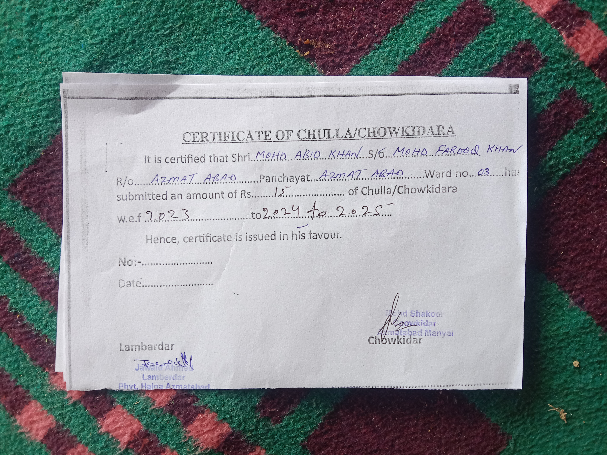 CERTIFICATE OF CHULLA/CHOWKIDARA
It is certified that Shri. MOHD ABID KHAN S/o MOHD FAROOQ KHAN
R/o AZMAT ABAD Panchayat AZMAT ABAD Ward no. 03 has
submitted an amount of Rs. 15 of Chulla/Chowkidara
w.e.f 2023 to 2024 to 2025
Hence, certificate is issued in his favour.
No:-
Date
Shakoor
Chowkidar
Azmatabad Manyal
Lambardar Chowkidar
Lambardar
Phyt. Halqa Azmatabad